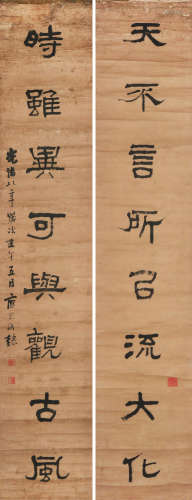 天不言所㠯流大化
時雖異可與觀古風
光緒八年歲次壬午五月